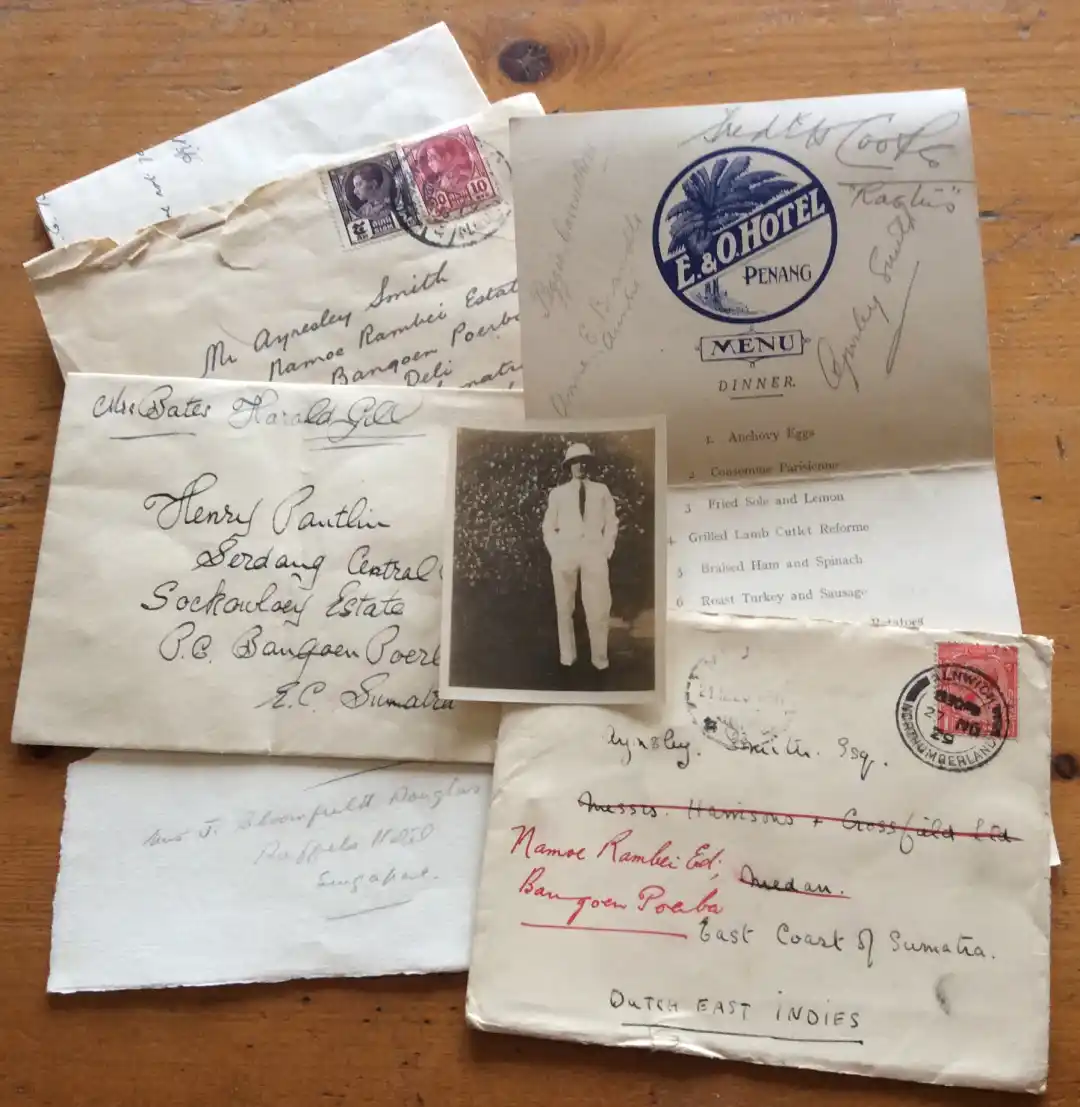 Mr Aynesley Smith
Namoe Rambei Estate
Bangoen Poerba
Deli
10
Fredk W Cooke
"Raglis"
Aynsley Smith
E. & O. HOTEL
PENANG
MENU
DINNER.
1. Anchovy Eggs
2 Consomme Parisienne
3 Fried Sole and Lemon
4 Grilled Lamb Cutlet Reforme
5 Braised Ham and Spinach
6 Roast Turkey and Sausage
Potatoes
Mrs Bates Harald Gill
Henry Pautlin
Serdang Central
Sockowloey Estate
P.O. Bangoen Poerb
E.C. Sumatra
Mrs J. Bloomfield Douglas
Raffles Hotel
Singapore.
ALNWICH
27 NO
25
NORTHUMBERLAND
Aynsley. Smith. Esq.
Messrs. Harrisons + Crossfield Ltd
Namoe Rambei Ed;
Medan.
Bangoen Poerba
East Coast of Sumatra.
DUTCH EAST INDIES